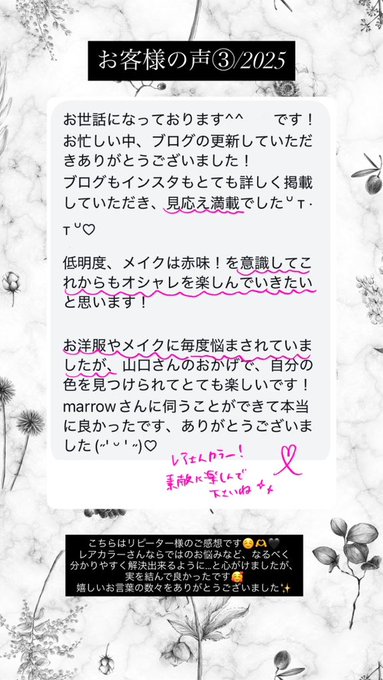 お客様の声③/2025
お世話になっております^^　　です！
お忙しい中、ブログの更新していただ
きありがとうございました！
ブログもインスタもとても詳しく掲載
していただき、見応え満載でした ᐡ т ·
т ᐡ♡
低明度、メイクは赤味！を意識してこ
れからもオシャレを楽しんでいきたい
と思います！
お洋服やメイクに毎度悩まされていま
したが、山口さんのおかげで、自分の
色を見つけられてとても楽しいです！
marrowさんに伺うことができて本当
に良かったです、ありがとうございま
した(˶ˊᵕˋ˶)♡
レアさんカラー！
素敵に楽しんで
下さいね
こちらはリピーター様のご感想です☺️🫶🖤
レアカラーさんならではのお悩みなど、なるべく
分かりやすく解決出来るように…と心がけましたが、
実を結んで良かったです🥰
嬉しいお言葉の数々をありがとうございました✨